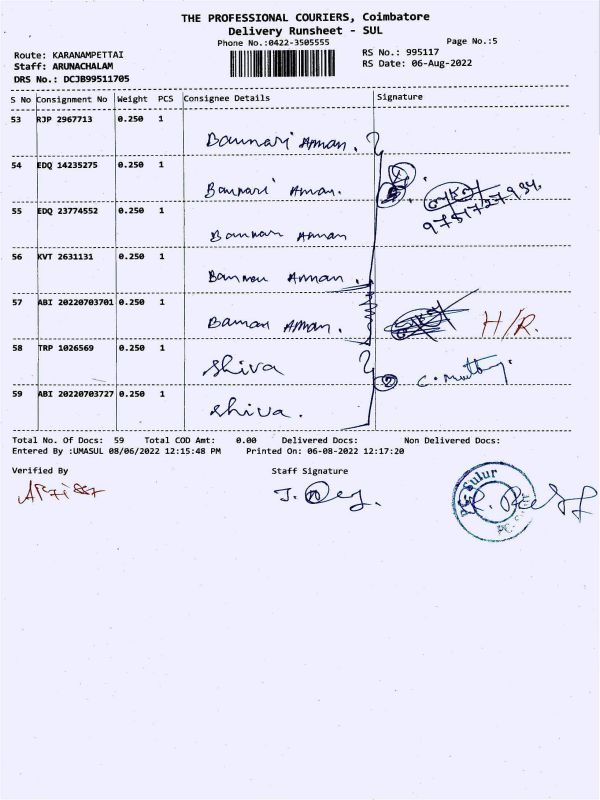 THE PROFESSIONAL COURIERS, Coimbatore
Delivery Runsheet - SUL
Phone No.:0422-3505555
Page No.:5
Route: KARANAMPETTAI
RS No.: 995117
Staff: ARUNACHALAM
RS Date: 06-Aug-2022
DRS No.: DCJB99511705
S No Consignment No Weight PCS Consignee Details Signature
53 RJP 2967713 0.250 1
Bannari Amman.
54 EDQ 14235275 0.250 1
Bannari Amman.
55 EDQ 23774552 0.250 1
Bannari Amman
56 KVT 2631131 0.250 1
Bannari Amman.
57 ABI 20220703701 0.250 1
Bannari Amman. H/R.
58 TRP 1026569 0.250 1
Shiva
② C. Muthu
59 ABI 20220703727 0.250 1
Shiva.
Total No. Of Docs: 59 Total COD Amt: 0.00 Delivered Docs: Non Delivered Docs:
Entered By :UMASUL 08/06/2022 12:15:48 PM Printed On: 06-08-2022 12:17:20
Verified By Staff Signature
Sulur